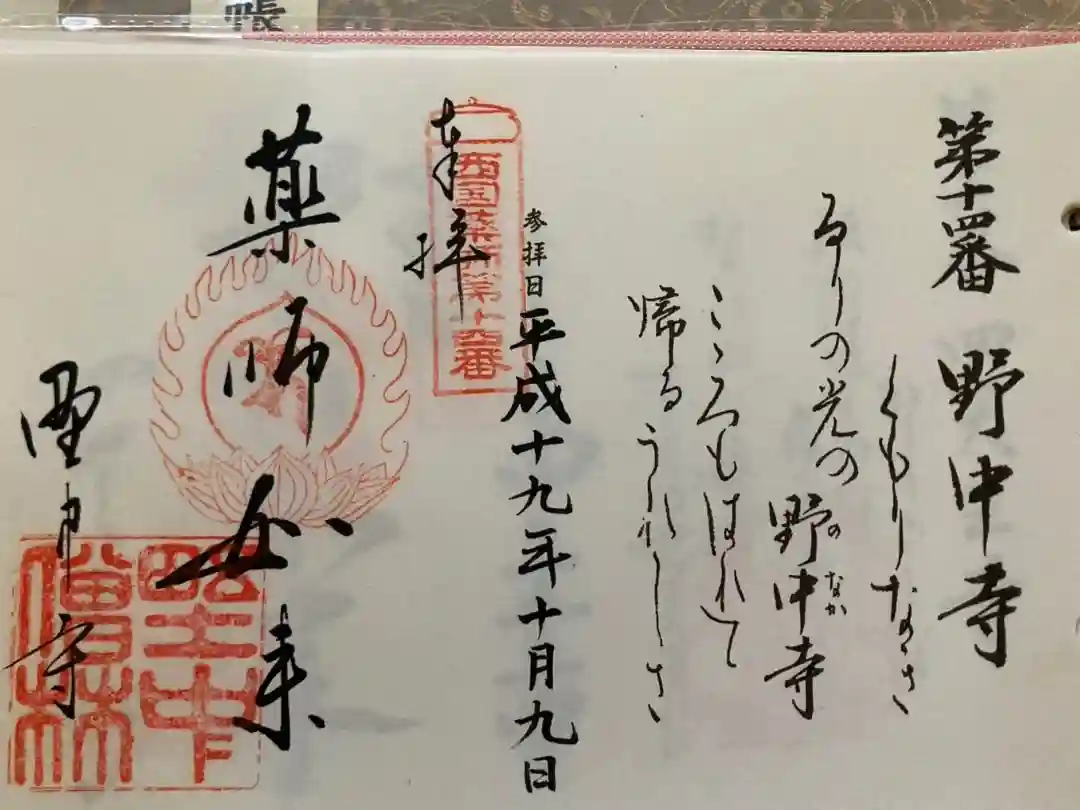 帳
第十四番 野中寺
くもりなき
るりの光の
野中寺
のなか
こゝろもはれて
帰るうれしさ
参拝日 平成十九年十月九日
奉拝
西国薬師第十四番
薬師如来
野中寺
野中僧林